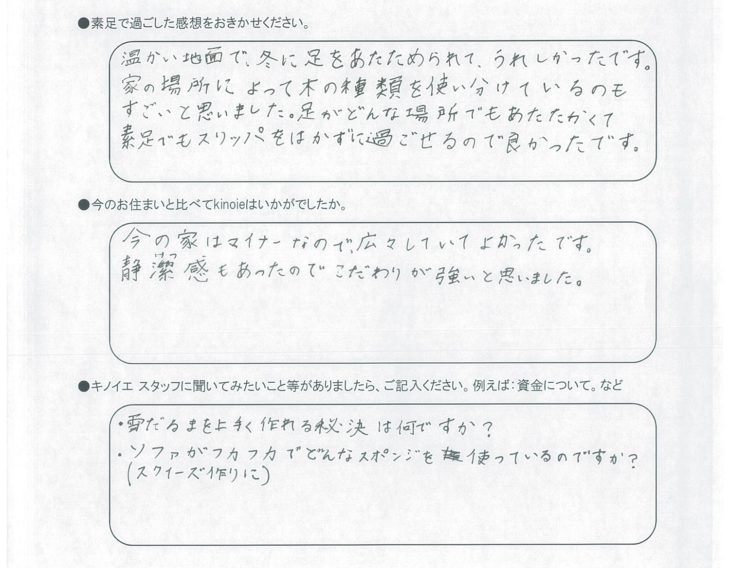 ●素足で過ごした感想をおきかせください。
温かい地面で、冬に足をあたためられて、うれしかったです。
家の場所によって木の種類を使い分けているのも
すごいと思いました。足がどんな場所でもあたたかくて
素足でもスリッパをはかずに過ごせるので良かったです。
●今のお住まいと比べてkinoieはいかがでしたか。
今の家はマイナーなので、広々していてよかったです。
静潔感もあったのでこだわりが強いと思いました。
●キノイエ スタッフに聞いてみたいこと等がありましたら、ご記入ください。例えば：資金について。など
・雪だるまを上手く作れる秘決は何ですか？
・ソファがフカフカでどんなスポンジを使っているのですか？
(スクイーズ作りに)